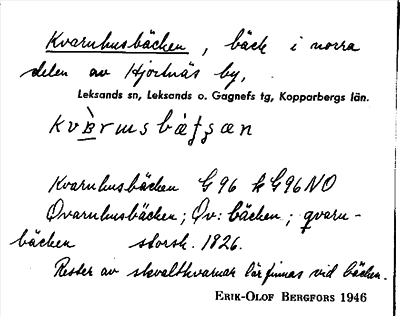 Kvarnhusbäcken, bäck i norra
delen av Hjortnäs by,
Leksands sn, Leksands o. Gagnefs tg, Kopparbergs län.
Kvarnhusbäcken G96 k G96NO
Qvarnhusbäcken; Qv: bäcken; qvarn-
bäcken storsk. 1826.
Rester av skvaltkvarnar lär finnas vid bäcken.
ERIK-OLOF BERGFORS 1946